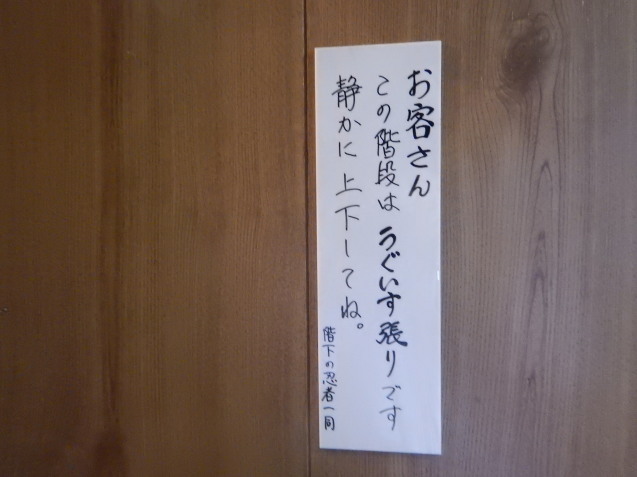 お客さん
この階段はうぐいす張りです
静かに上下してね。
階下の忍者一同